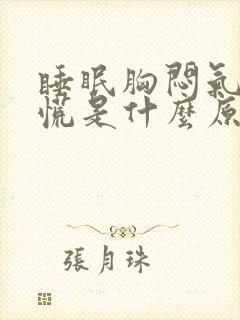 睡眠胸悶氣
慌是什麼原
張月珠